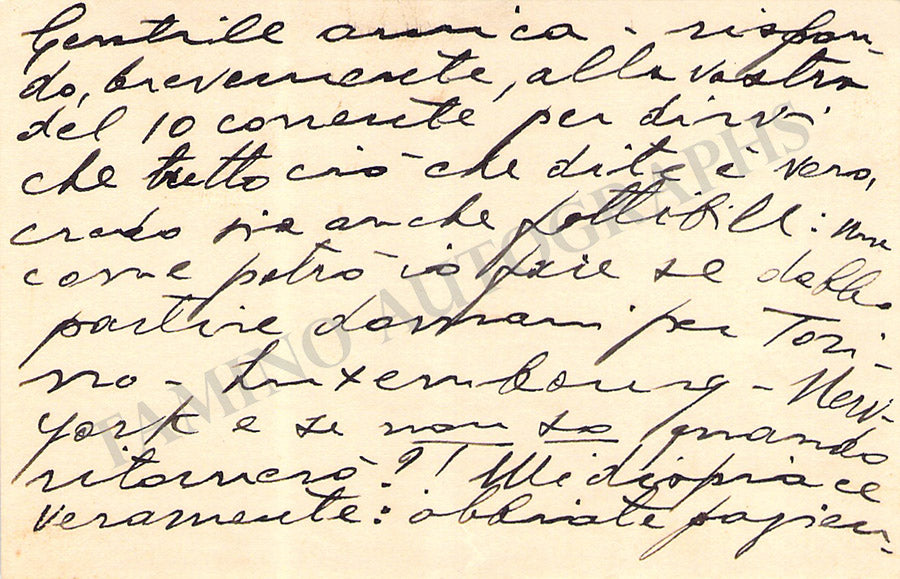 Gentile amica - rispon-
do, brevemente, alla vostra
del 10 corrente per dirvi
che tutto ciò che dite è vero,
credo sia anche fattibile: ma
come potrò io fare se debbo
partire domani per Tori-
no - Luxembourg - New-
York e se non so quando
ritornerò?! Mi dispiace
veramente: abbiate pazien-
TAMINO AUTOGRAPHS